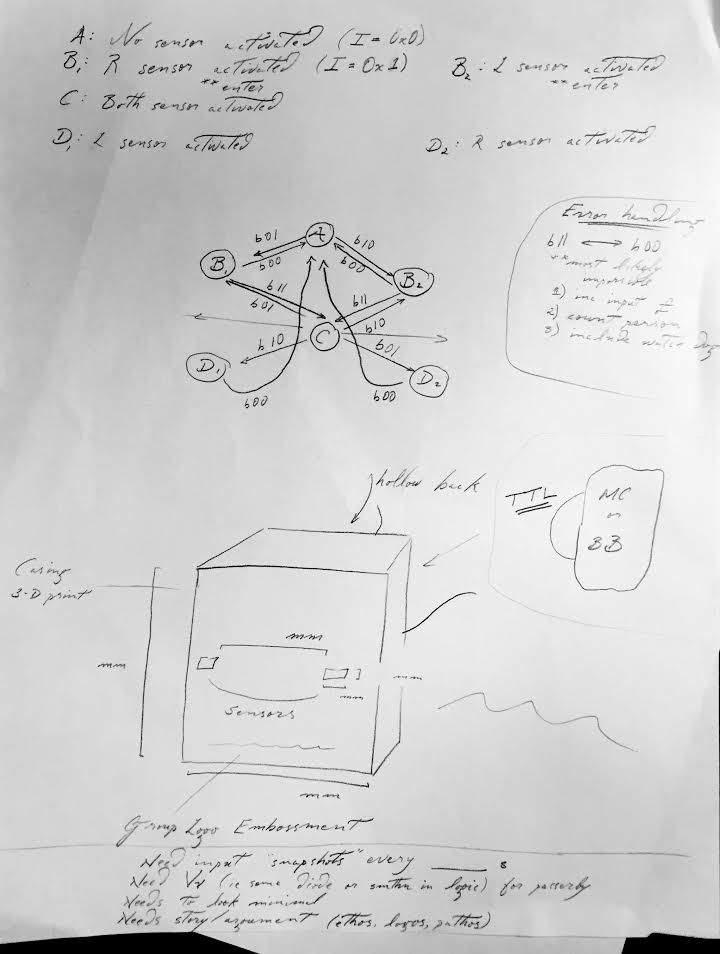 A: No sensor activated (I = 0x0)
B₁: R sensor activated (I = 0x1)
** enter
B₂: L sensor activated
** enter
C: Both sensor activated
D₁: L sensor activated
D₂: R sensor activated
A
b01
b10
b00
b00
B₁
B₂
b11
b11
b01
b10
C
b10
b01
D₁
D₂
b00
b00
Error handling
b11 ⟷ b00
** most likely
impossible
1) inc input
2) count person
3) include watch dog
hollow back
TTL
MC
or
BB
Casing
3-D print
mm
mm
mm
mm
sensors
mm
Group Logo Embossment
Need input "snapshots" every ____ s
Need (ie some diode or smthn in logic) for passerby
Needs to look minimal
Needs story/argument (ethos, logos, pathos)